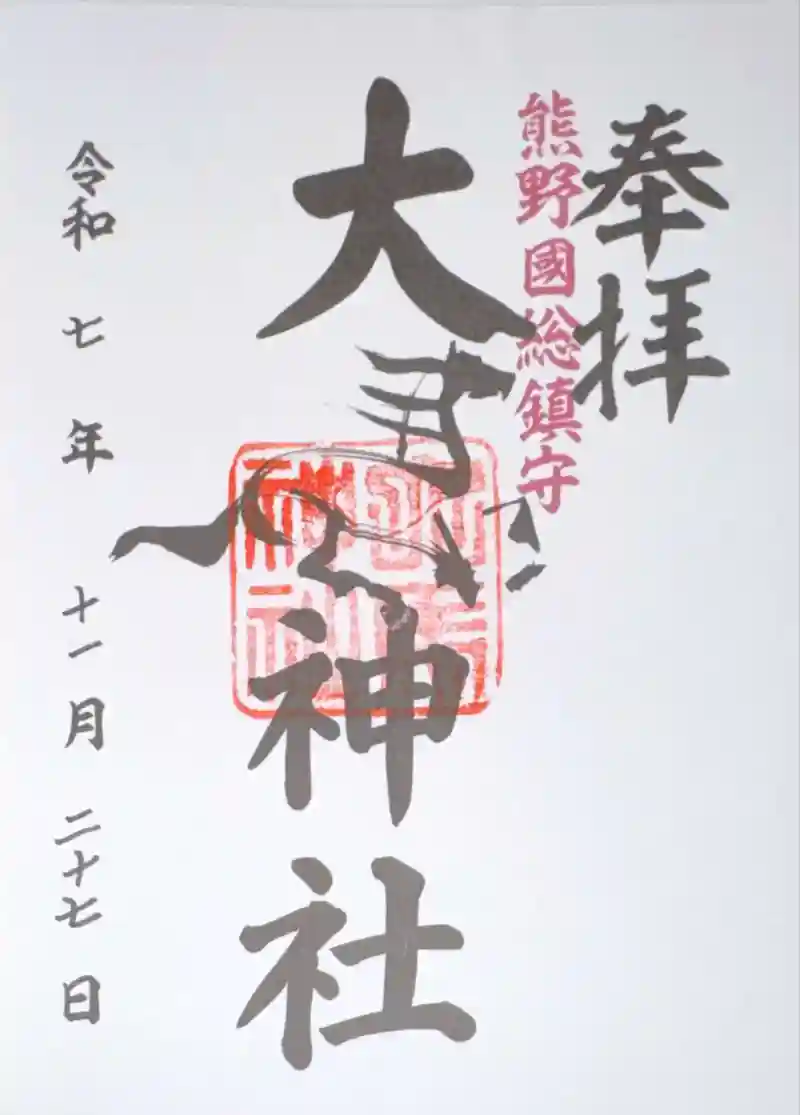 奉拝
熊野國総鎮守
大馬神社
令和七年十一月二十七日